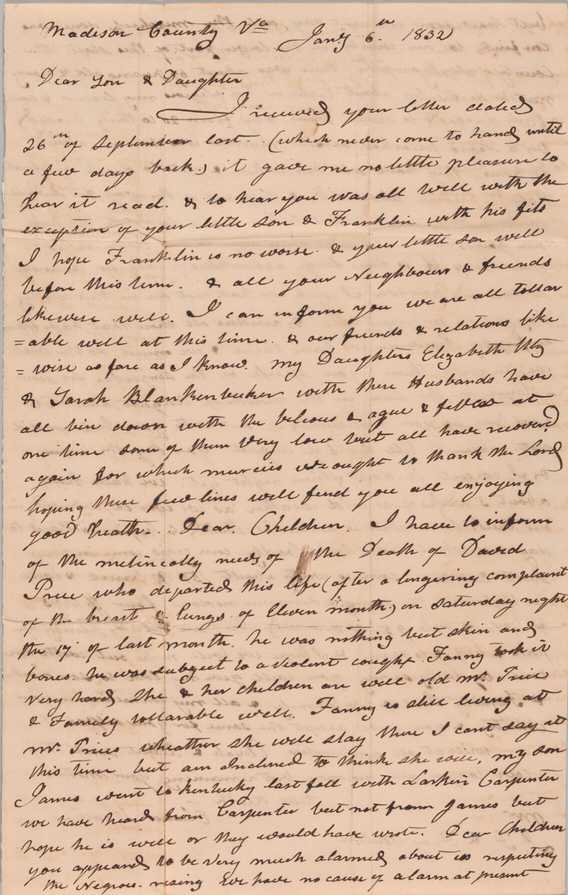 Madison County Va Jany 6th 1832
Dear Son & Daughter
I received your letter dated
26th of September last. (which never come to hand until
a few days back.) it gave me no little pleasure to
hear it read. & to hear you was all well with the
exception of your little son & Franklin with his fits
I hope Franklin is no worse. & your little son well
before this time. & all your Neighbours & friends
likewise well. I can inform you we are all toller
=able well at this time. & our friends & relations like
=wise as fare as I know. my Daughters Elizabeth Utz
& Sarah Blankenbecker with there Husbands have
all bin down with the belious & ague & fever at
one time some of them very low but all have recovered
again for which mercies we ought to thank the Lord
hoping these few lines will find you all enjoying
good health. Dear Children. I have to inform
of the melincally news of the Death of David
Price who departed this life (after a longering complaint
of the breast & lungs of Eleven month) on Saturday night
the 17 of last month. he was nothing but skin and
bones he was subject to a violent cough. Fanny took it
very hard She & her children are well old Mr. Price
& Family tollarable well. Fanny is still living at
Mr. Prices wheather she will stay there I cant say at
this time but am Inclined to think she will, my son
James went to Kentucky last fall with Larkin Carpenter
we have heard from Carpenter but not from James but
hope he is well or they would have wrote. Dear Children
you appeared to be very much alarmed about us respecting
the Negroes rising we have no cause of alarm at present